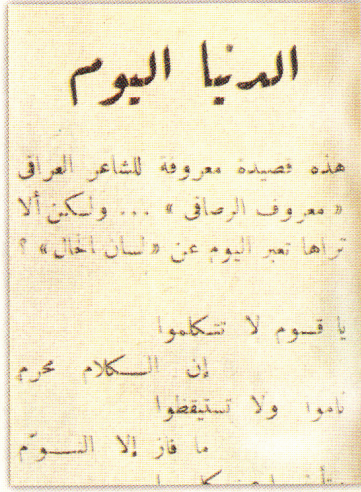 الدنيا اليوم
هذه قصيدة معروفة للشاعر العراقى
« معروف الرصافى » ... ولكن ألا
تراها تعبر اليوم عن « لسان الحال » ؟
يا قوم لا تتكلموا
إن الكلام محرم
ناموا ولا تستيقظوا
ما فاز إلا النوّم